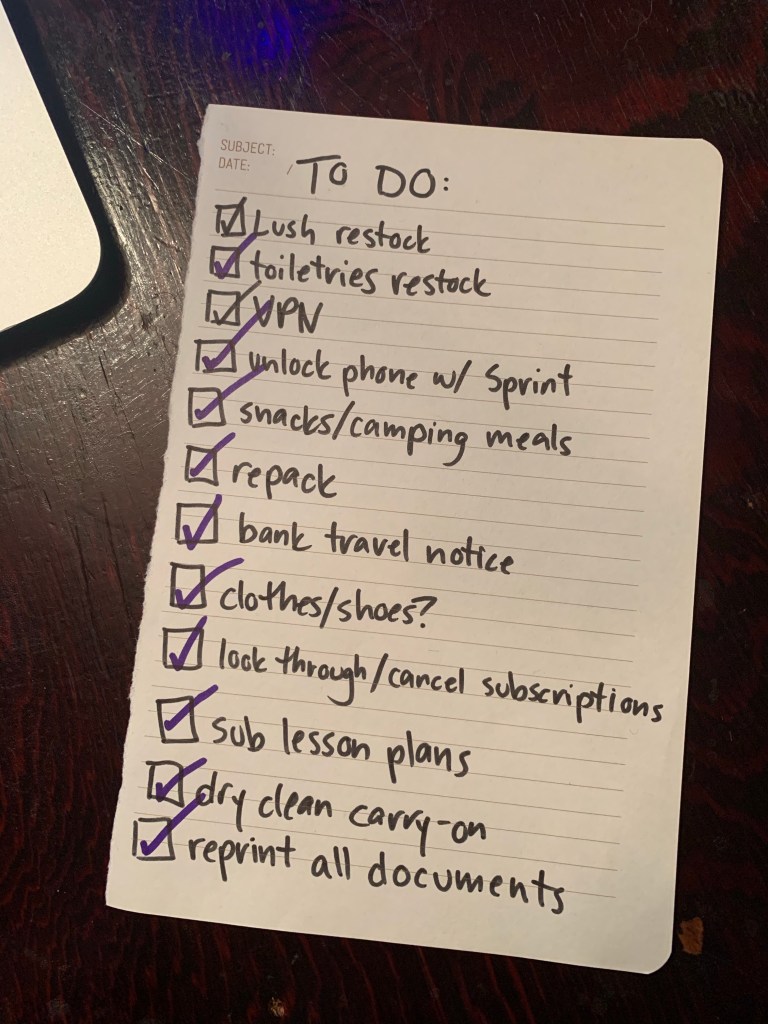 SUBJECT:
DATE: /
TO DO:
Lush restock
toiletries restock
VPN
unlock phone w/ Sprint
snacks/camping meals
repack
bank travel notice
clothes/shoes?
look through/cancel subscriptions
sub lesson plans
dry clean carry-on
reprint all documents